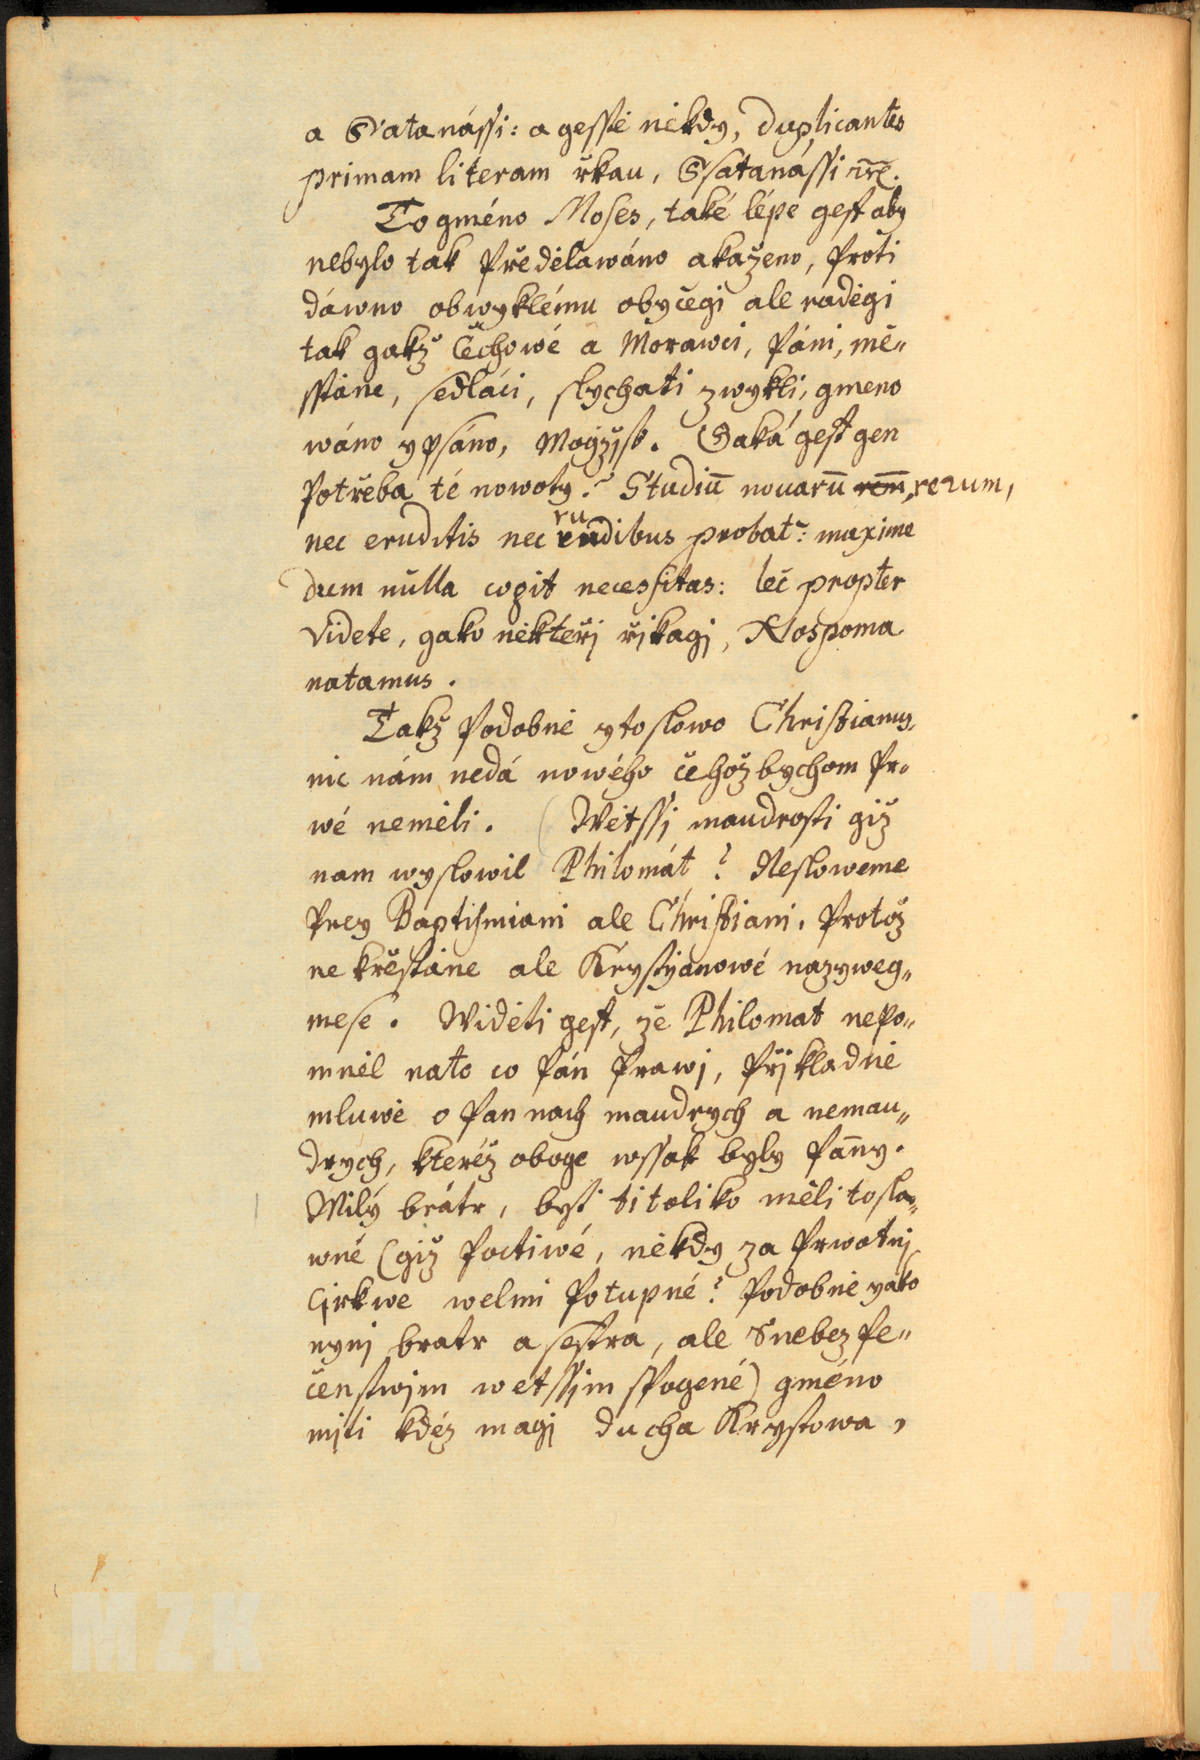 a Satanássi: a gesstě někdy, duplicantes
primam literam řkau, Ssatanássi etc.
To gméno Moses, také lépe gest aby
nebylo tak předěláwáno akaženo, proti
dáwno obwyklému obyčegi ale raděgi
tak gakž Čechowé a Morawci, páni, mě„
sstiane, sedláci, slychati zwykli, gmeno
wáno ypsáno, Mogžiss. Gaká gest gen
potřeba té nowoty? Studiū nouarū rerum,
nec eruditis nec rudibus probat˜: maxime
dum nulla cogit necessitas: leč propter
videte, gako někteřj řjkagj, Nospoma
natamus.
Takž podobně yto slowo Christianus,
nic nám nedá nowého čehož bychom pr„
wé neměli. (Wětssj maudrosti giž
nam wyslowil Philomát? Nesloweme
prey Baptismiani ale Christiani. Protož
ne křestiane ale Krystyanowé nazyweg„
mese. Widěti gest, že Philomat nepo„
mněl nato co pán prawj, přjkladně
mluwě o pannach maudrych a nemau„
drych, kteréž oboge wssak byly pan̄y.
Milý brátr, byt ti toliko měli tosla„
wné (giž poctiwé, někdy za prwotnj
Cýrkwe welmi potupné? podobně yako
nynj bratr a sestra, ale Snebezpe„
čenstwjm wětssjm spogené) gméno
mjti kdéž magj ducha Krystowa,
MZK
MZK